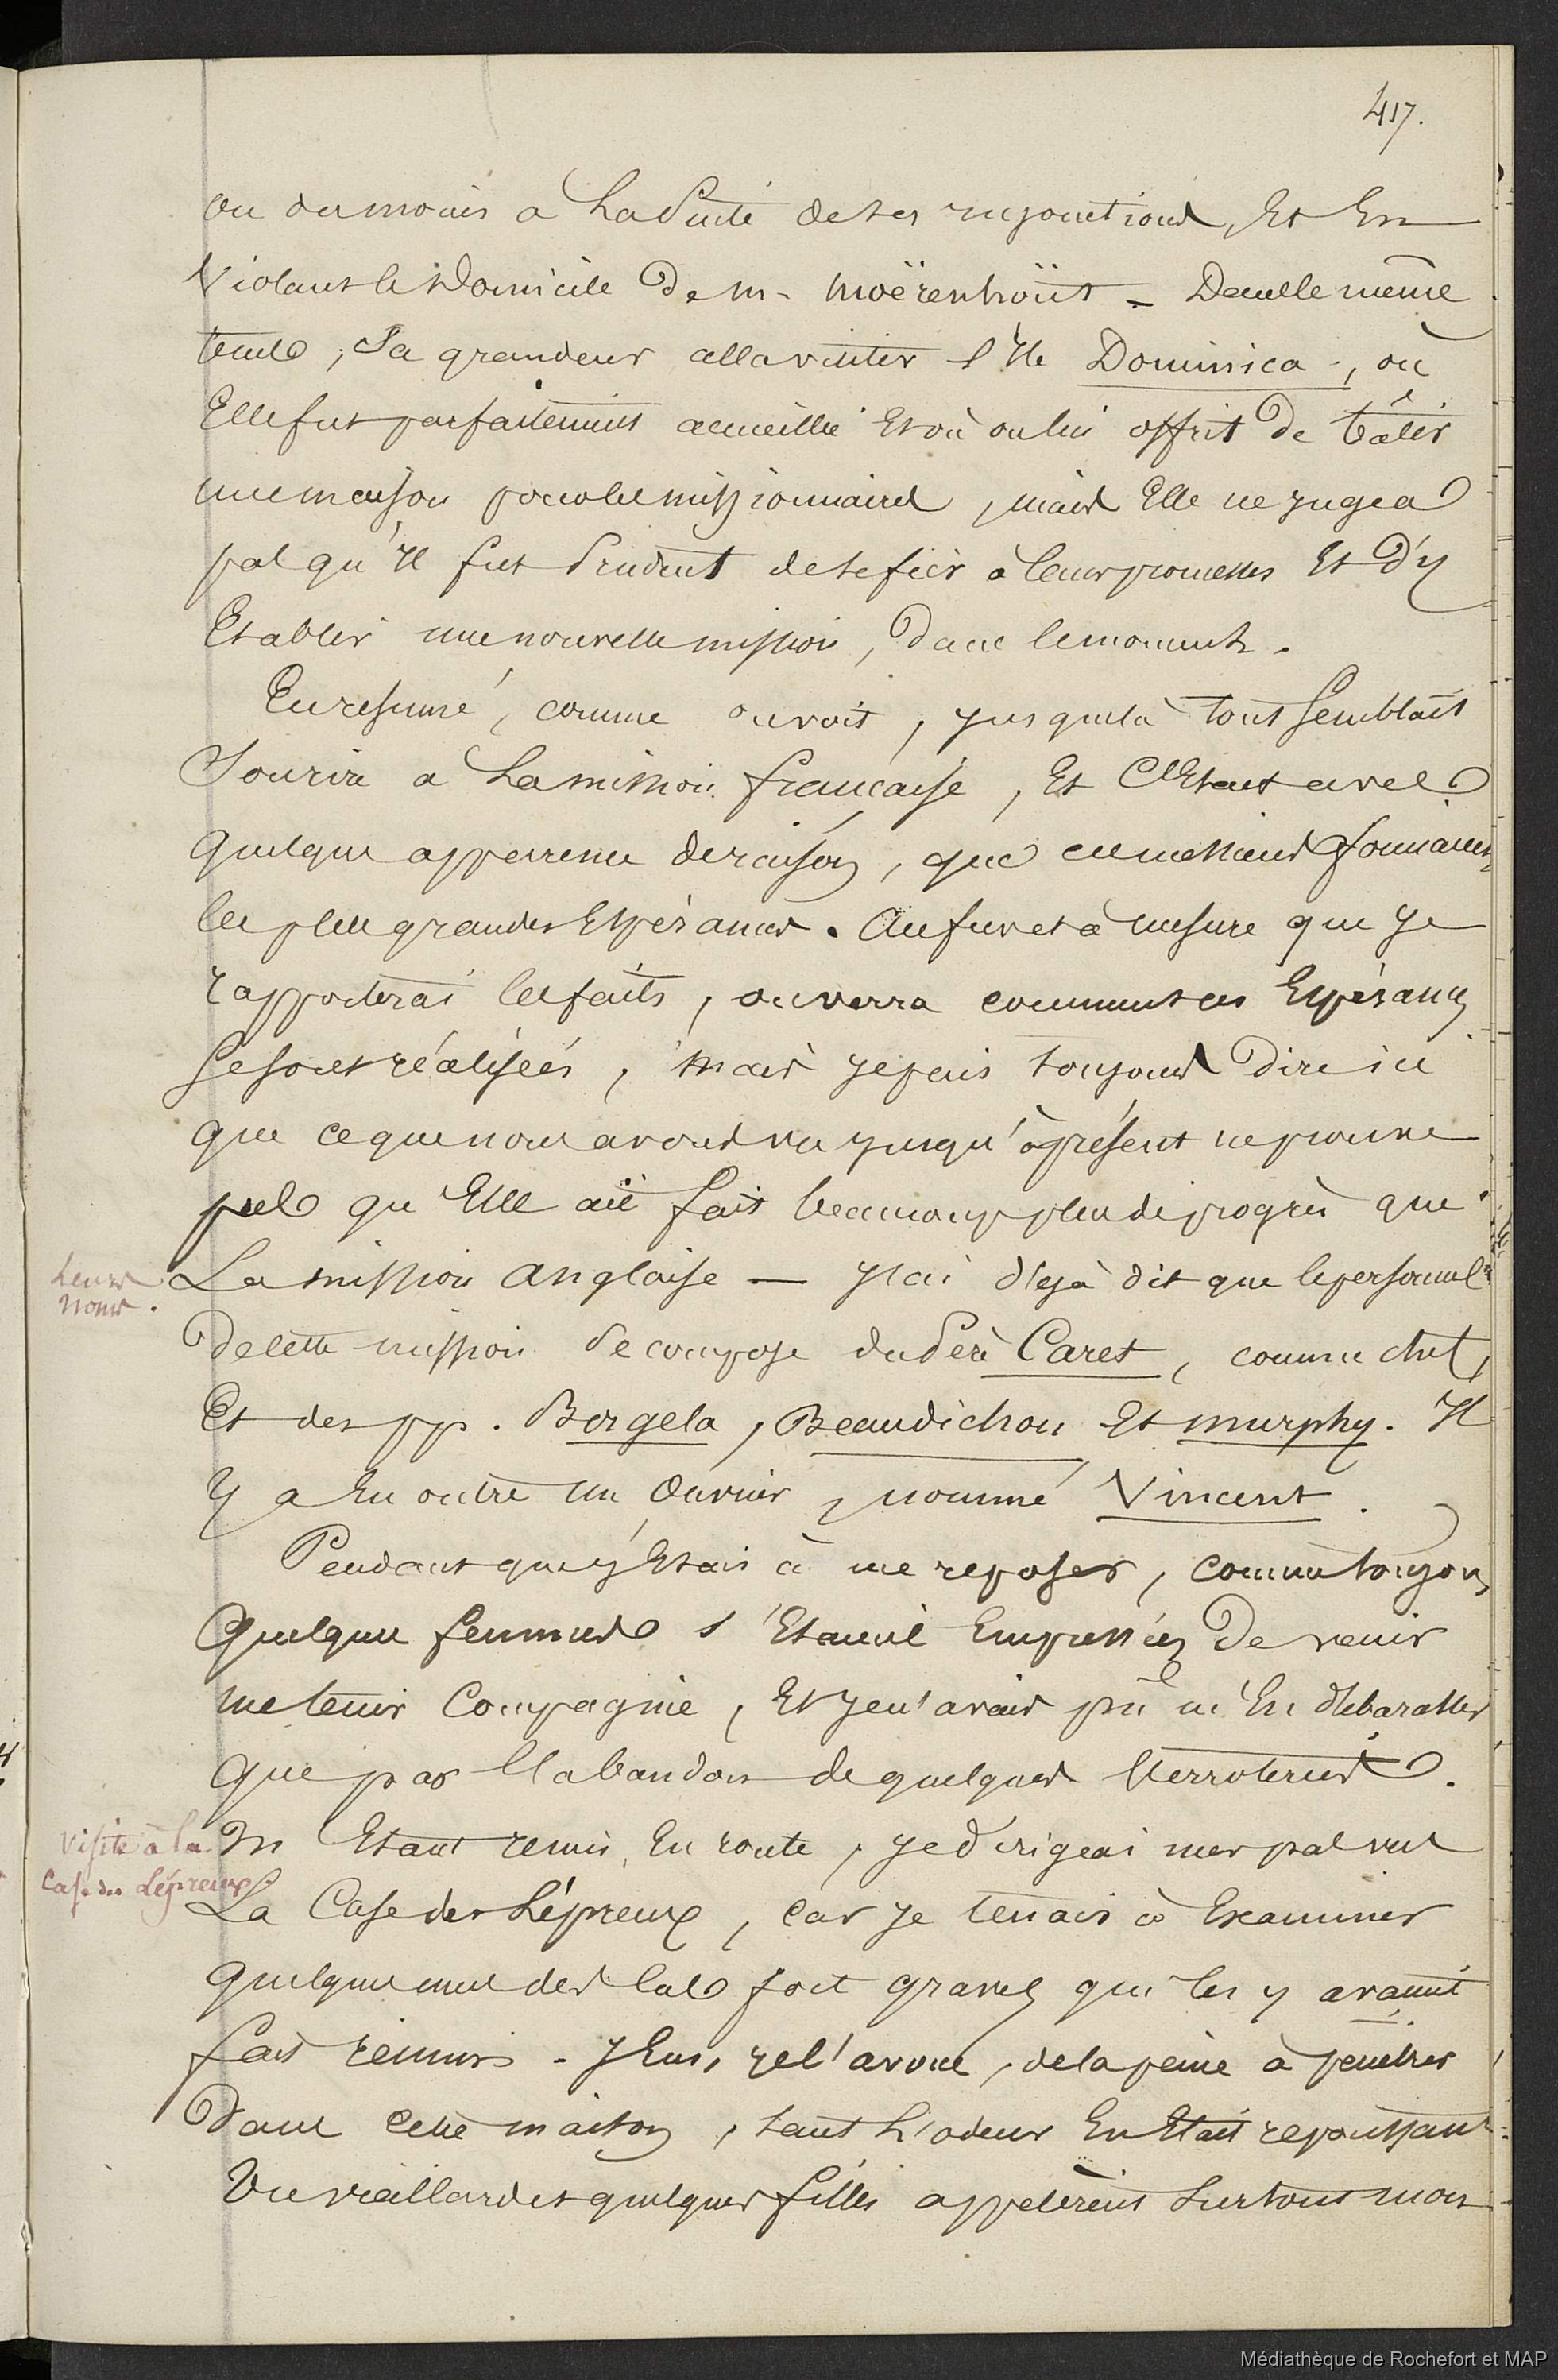 417.
ou du moins a La Suite de ses injonctions, Et En
Violant le Domicile De m. Moërenhoüt - Dans le même
tems, Sa grandeur alla visiter l'Ile Dominica, où
Elle fut parfaitement accueillie Et où on lui offrit De bâtir
une maison pour les missionnaires, mais Elle ne jugea
pas qu'Il fut Prudent de se fier à leurs promesses Et D'y
Etablir une nouvelle mission, Dans le moment.
En résumé, comme on voit, jusques là tout Semblait
Sourire a La mission française, Et C'Etait avec
quelque apparence de raison, que ces messieurs fondaient
les plus grandes Espérances. Au fur et à mesure que Je
rapporterai les faits, on verra comment ces Espérances
Se sont réalisées, mais je puis toujours Dire ici
que ce que nous avons vu jusqu'à présent ne prouve
pas qu'Elle ait fait beaucoup plus de progrès que
Leurs
noms.
La mission Anglaise — J'ai déjà dit que le personnel
De cette mission Se compose du Père Caret, comme chef,
Et des pp. Borgela, Beaudichon Et murphy. Il
Y a En outre un Ouvrier, nommé Vincent.
Pendant que j'Etais à me reposer, comme toujours
Quelques femmes s'Etaient Empressées De venir
me tenir Compagnie, Et je n'avais pu m'En débarasser
que par l'abandon de quelques Verroteries.
Visite à la
Case des Lépreux
M'Etant remis En route, je dirigeai mes pas vers
La Case des Lépreux, car je tenais à Examiner
quelques uns des cas fort graves qui les y avaient
fait réunir - J'Eus, je l'avoue, de la peine à pénétrer
Dans cette maison, tant L'odeur En Etait repoussante
Un vieillard et quelques filles appelèrent Surtout mon
Médiathèque de Rochefort et MAP